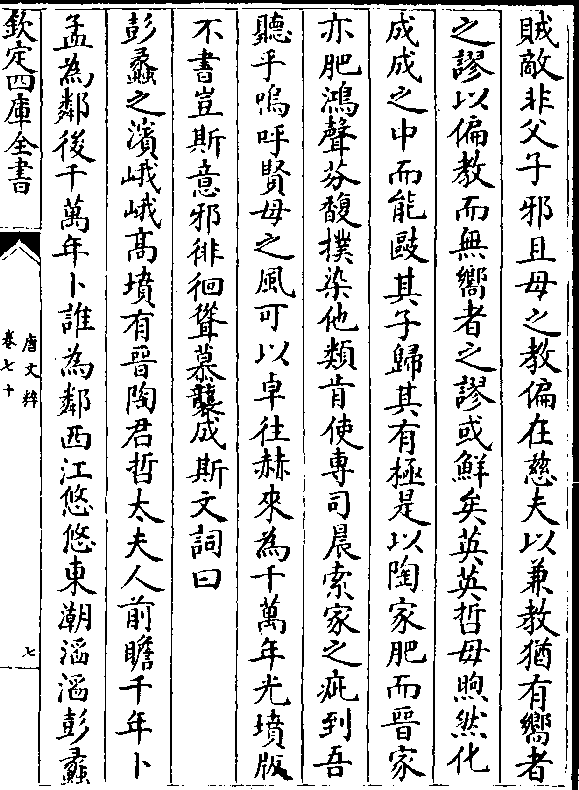 賊敵非父子邪且母之教偏在慈夫以兼教猶有嚮者
之謬以偏教而無嚮者之謬或鮮矣英英哲母煦然化
成成之中而能敺其子歸其有極是以陶家肥而晉家
亦肥鴻聲芬馥撲染他類肯使專司晨索家之疵到吾
聽乎嗚呼賢母之風可以卓往赫來為千萬年光墳版
不書豈斯意邪徘徊聳慕襲成斯文詞曰
彭蠡之濱峨峨髙墳有晉陶君哲太夫人前瞻千年卜
孟為鄰後千萬年卜誰為鄰西江悠悠東潮滔滔彭蠡
欽定四庫全書
唐文粹
卷七十
七